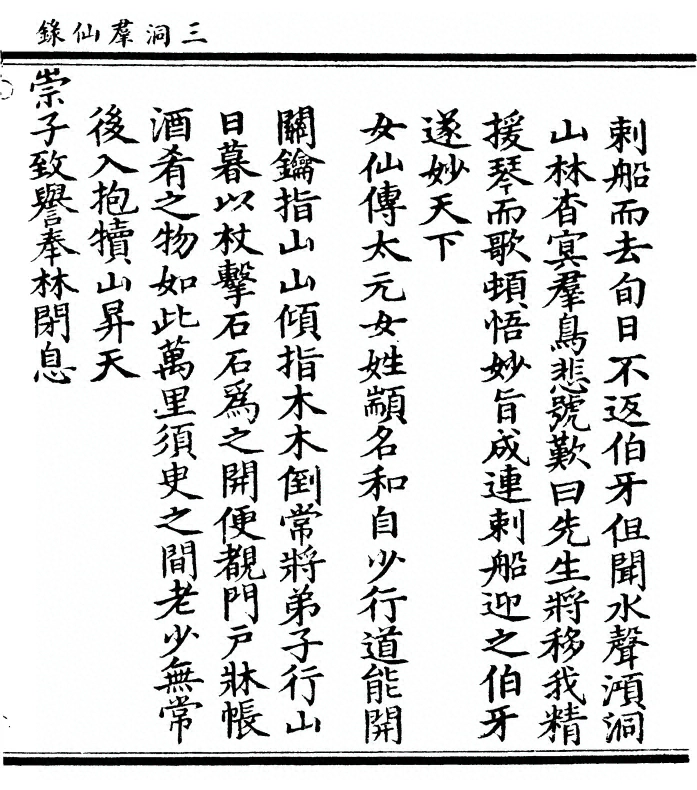 三洞羣仙錄
刺船而去旬日不返伯牙但聞水聲澒洞
山林杳㝠羣鳥悲號歎曰先生將移我精
援琴而歌頓悟妙旨成連刺船迎之伯牙
遂妙天下
女仙傳太元女姓顓名和自少行道能開
關鑰指山山傾指木木倒常將弟子行山
日暮以杖擊石石爲之開便覩門戸牀帳
酒肴之物如此萬里須臾之間老少無常
後入抱犢山昇天
崇子致譽奉林閉息